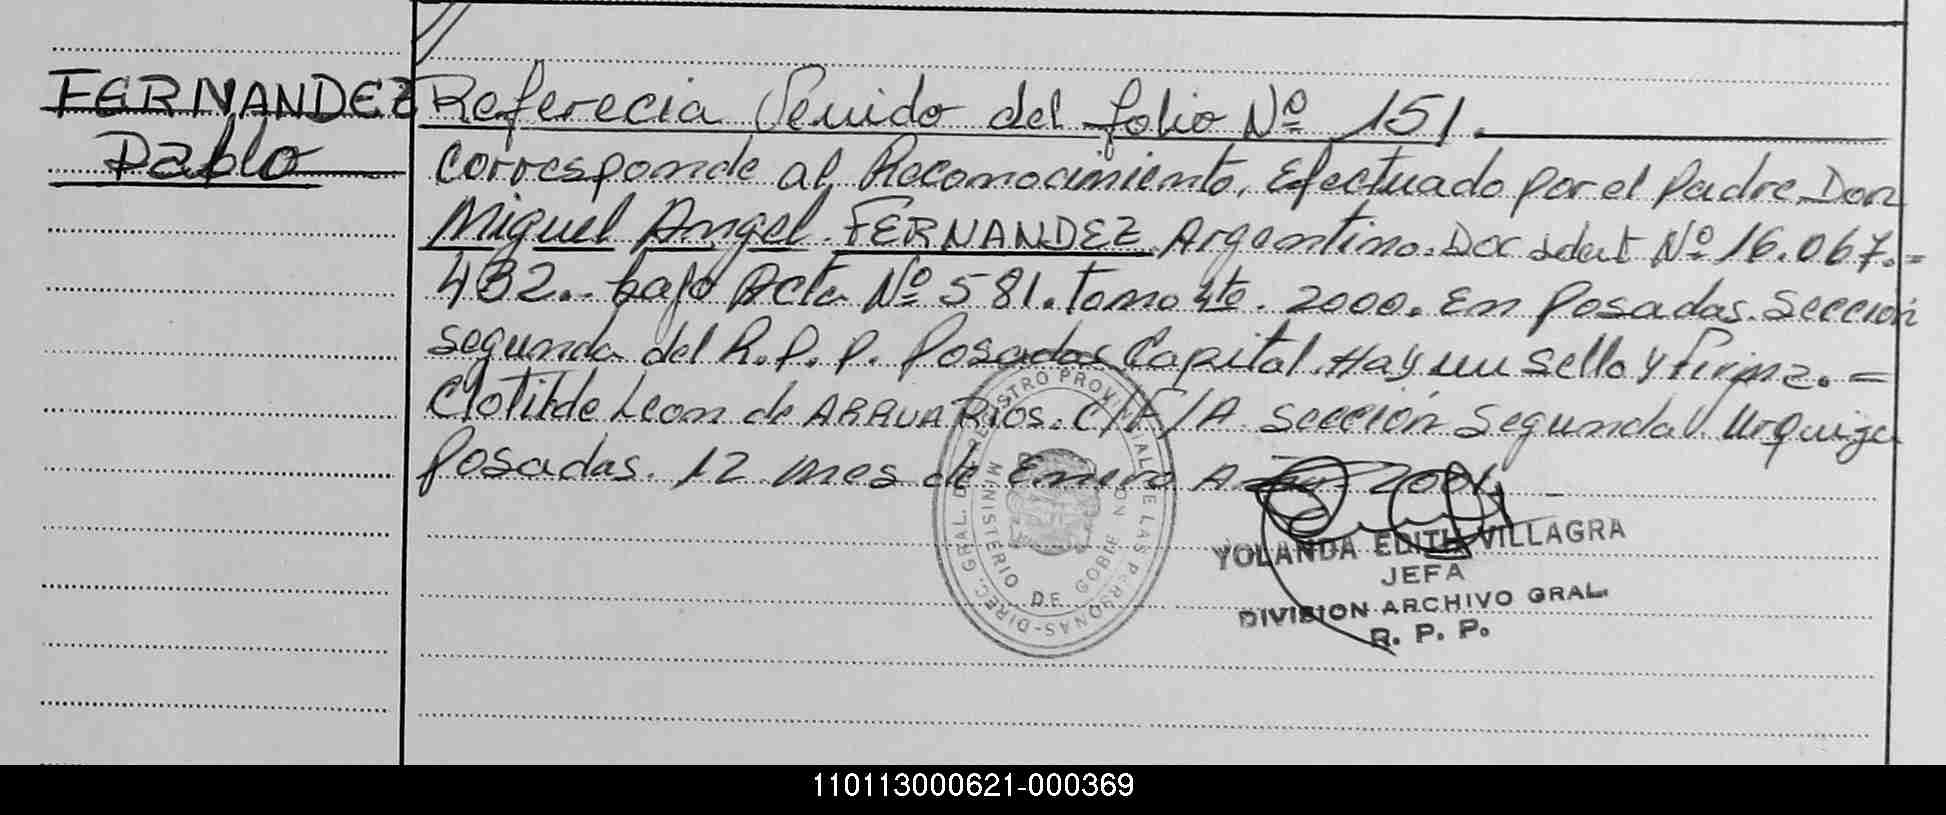 FERNANDEZ
Pablo
Referecia Venido del folio Nº 151.
Corresponde al Reconocimiento, Efectuado por el Padre Don
Miguel Angel FERNANDEZ Argentino. Doc ident Nº 16.067.=
432.- bajo Acta Nº 581. Tomo 4to. 2000. En Posadas. Sección
segunda del R.P.P. Posadas Capital. Hay un sello y Firma. =
Clotilde Leon de ARRUA RIOS. C/F/A Sección Segunda V. Urquiza
Posadas. 12 mes de Enero A 2001.
DIREC. GRAL. DEL REGISTRO PROVINCIAL DE LAS PERSONAS-
MINISTERIO DE GOBIE
YOLANDA EDITH VILLAGRA
JEFA
DIVISION ARCHIVO GRAL.
R. P. P.
110113000621-000369